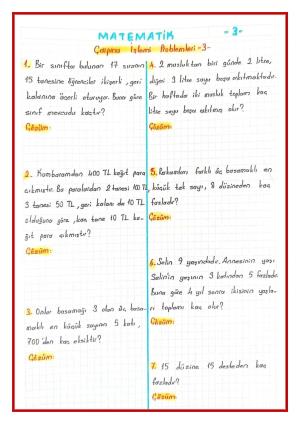 MATEMATİK
-3-
Çarpma İşlemi Problemleri-3-
1. Bir sınıfta bulunan 17 sıranın
15 tanesine öğrenciler ikişerli, geri
kalanına üçerli oturuyor. Buna göre
sınıf mevcudu kaçtır?
Çözüm:
2. Kumbaramdan 400 TL kağıt para
çıkmıştır. Bu paralardan 2 tanesi 100 TL,
3 tanesi 50 TL, geri kalanı da 10 TL
olduğuna göre, kaç tane 10 TL ka-
ğıt para çıkmıştır?
Çözüm:
3. Onlar basamağı 3 olan üç basa-
maklı en küçük sayının 5 katı,
700'den kaç eksiktir?
Çözüm:
4. 2 musluktan biri günde 2 litre,
diğeri 3 litre suyu boşa akıtmaktadır.
Bir haftada iki musluk toplam kaç
litre suyu boşa akıtmış olur?
Çözüm:
5. Rakamları farklı üç basamaklı en
küçük tek sayı, 8 düzineden kaç
fazladır?
Çözüm:
6. Selin 9 yaşındadır. Annesinin yaşı
Selin'in yaşının 3 katından 5 fazladır.
Buna göre 4 yıl sonra ikisinin yaşla-
rı toplamı kaç olur?
Çözüm:
7. 15 düzine 15 desteden kaç
fazladır?
Çözüm: